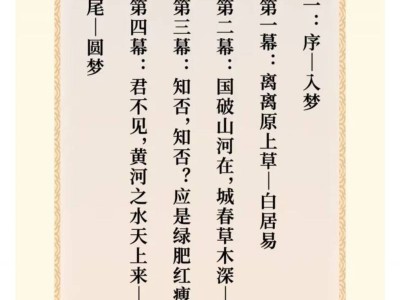 一：序—入梦
第一幕：离离原上草—白居易
第二幕：国破山河在，城春草木深—
第三幕：知否，知否？应是绿肥红瘦
第四幕：君不见，黄河之水天上来—
尾—圆梦